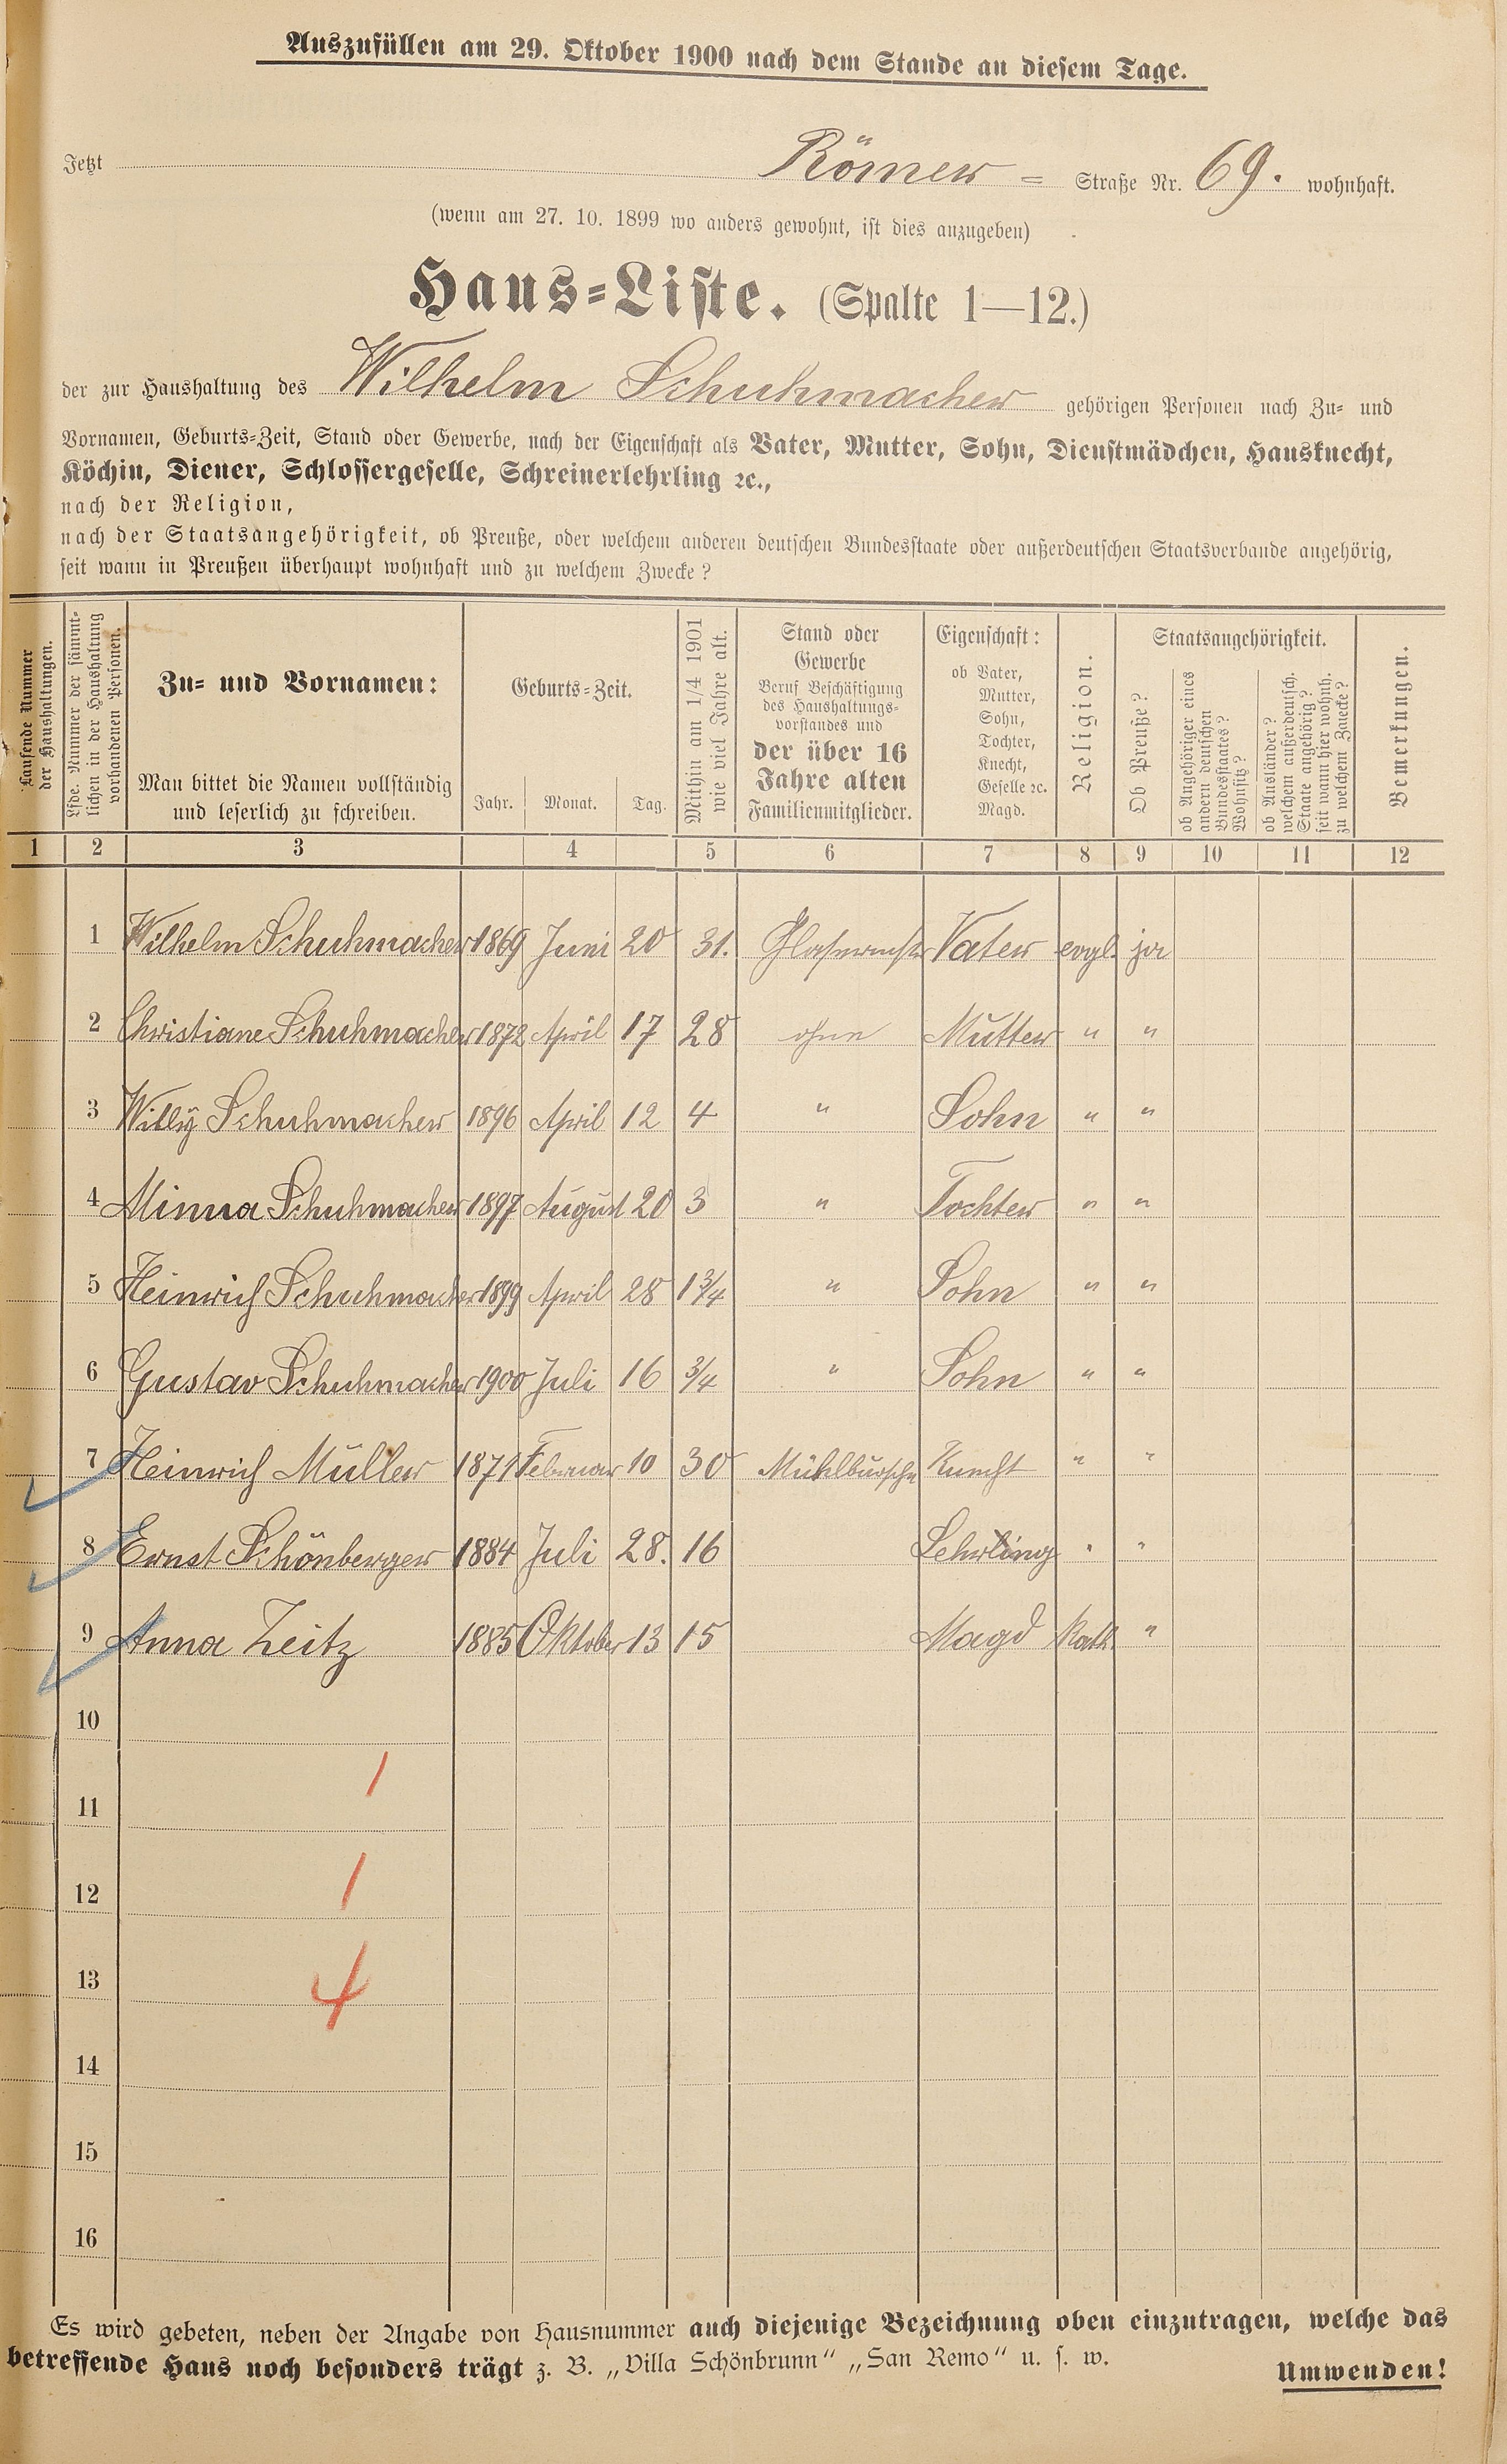 Auszufüllen am 29. Oktober 1900 nach dem Stande an diesem Tage.
Jetzt Römer = Straße Nr. 69. wohnhaft.
(wenn am 27. 10. 1899 wo anders gewohnt, ist dies anzugeben)
Haus=Liste. (Spalte 1—12.)
der zur Haushaltung des Wilhelm Schuhmacher gehörigen Personen nach Zu= und
Vornamen, Geburts=Zeit, Stand oder Gewerbe, nach der Eigenschaft als Vater, Mutter, Sohn, Dienstmädchen, Hausknecht,
Köchin, Diener, Schlossergeselle, Schreinerlehrling ꝛc.,
nach der Religion,
nach der Staatsangehörigkeit, ob Preuße, oder welchem anderen deutschen Bundesstaate oder außerdeutschen Staatsverbande angehörig,
seit wann in Preußen überhaupt wohnhaft und zu welchem Zwecke?
Laufende Nummer
der Haushaltungen.
Lfde. Nummer der sämmt=
lichen in der Haushaltung
vorhandenen Personen.
Zu= und Vornamen:
Man bittet die Namen vollständig
und leserlich zu schreiben.
Geburts=Zeit.
Jahr. Monat. Tag.
Mithin am 1/4 1901
wie viel Jahre alt.
Stand oder
Gewerbe
Beruf Beschäftigung
des Haushaltungs=
vorstandes und
der über 16
Jahre alten
Familienmitglieder.
Eigenschaft:
ob Vater,
Mutter,
Sohn,
Tochter,
Knecht,
Geselle ꝛc.
Magd.
Religion.
Staatsangehörigkeit.
Ob Preuße?
ob Angehöriger eines
andern deutschen
Bundesstaates?
Wohnsitz?
ob Ausländer?
welchem außerdeutsch.
Staate angehörig?
seit wann hier wohnh.
zu welchem Zwecke?
Bemerkungen.
1 2 3 4 5 6 7 8 9 10 11 12
1 Wilhelm Schuhmacher 1869 Juni 20 31. Glasermstr Vater evgl. ja
2 Christiane Schuhmacher 1872 April 17 28 ohne Mutter " "
3 Willÿ Schuhmacher 1896 April 12 4 " Sohn " "
4 Minna Schuhmacher 1897 August 20 3 " Tochter " "
5 Heinrich Schuhmacher 1899 April 28 1 3/4 " Sohn " "
6 Gustav Schuhmacher 1900 Juli 16 3/4 " Sohn " "
7 Heinrich Müller 1871 Februar 10 30 Mühlbursche Knecht " "
8 Ernst Schönberger 1884 Juli 28. 16 Lehrling " "
9 Anna Zeitz 1885 Oktober 13 15 Magd Kath. "
10
1
11
12 1
13 4
14
15
16
Es wird gebeten, neben der Angabe von Hausnummer auch diejenige Bezeichnung oben einzutragen, welche das
betreffende Haus noch besonders trägt z. B. „Villa Schönbrunn“ „San Remo“ u. s. w.
Umwenden!